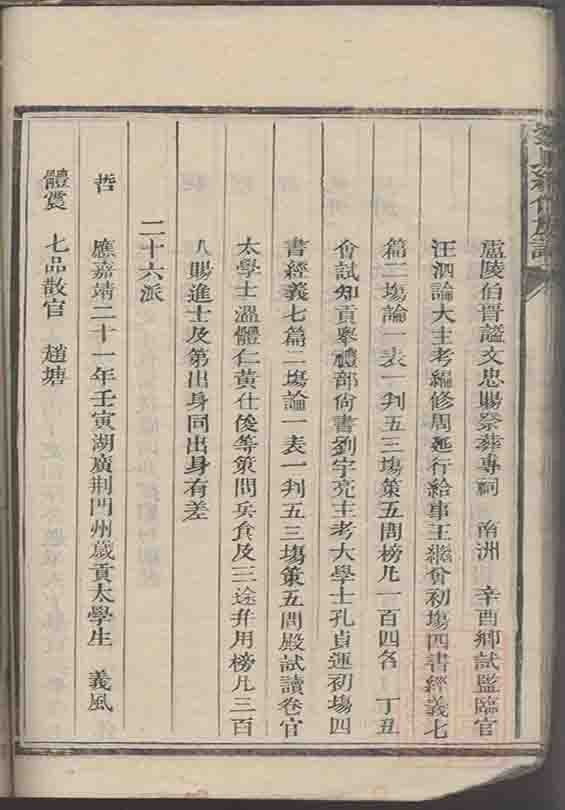 盧陵伯晋謚文忠賜祭葬專祠 南洲 辛酉鄉試監臨官
汪泗論大主考編修周延行給事王繼曾初塲四書經義七
篇二塲論一表一判五三塲策五問榜凡一百四名 丁丑
會試知貢舉禮部尙書劉宇亮主考大學士孔貞運初塲四
書經義七篇二塲論一表一判五三塲策五問殿試讀卷官
太學士溫體仁黃仕俊等策問兵食及三途幷用榜凡三百
人賜進士及第出身同出身有差
二十六派
哲 應嘉靖二十一年壬寅湖廣荆門州歲貢太學生 義風
體賞 七品散官 趙塘